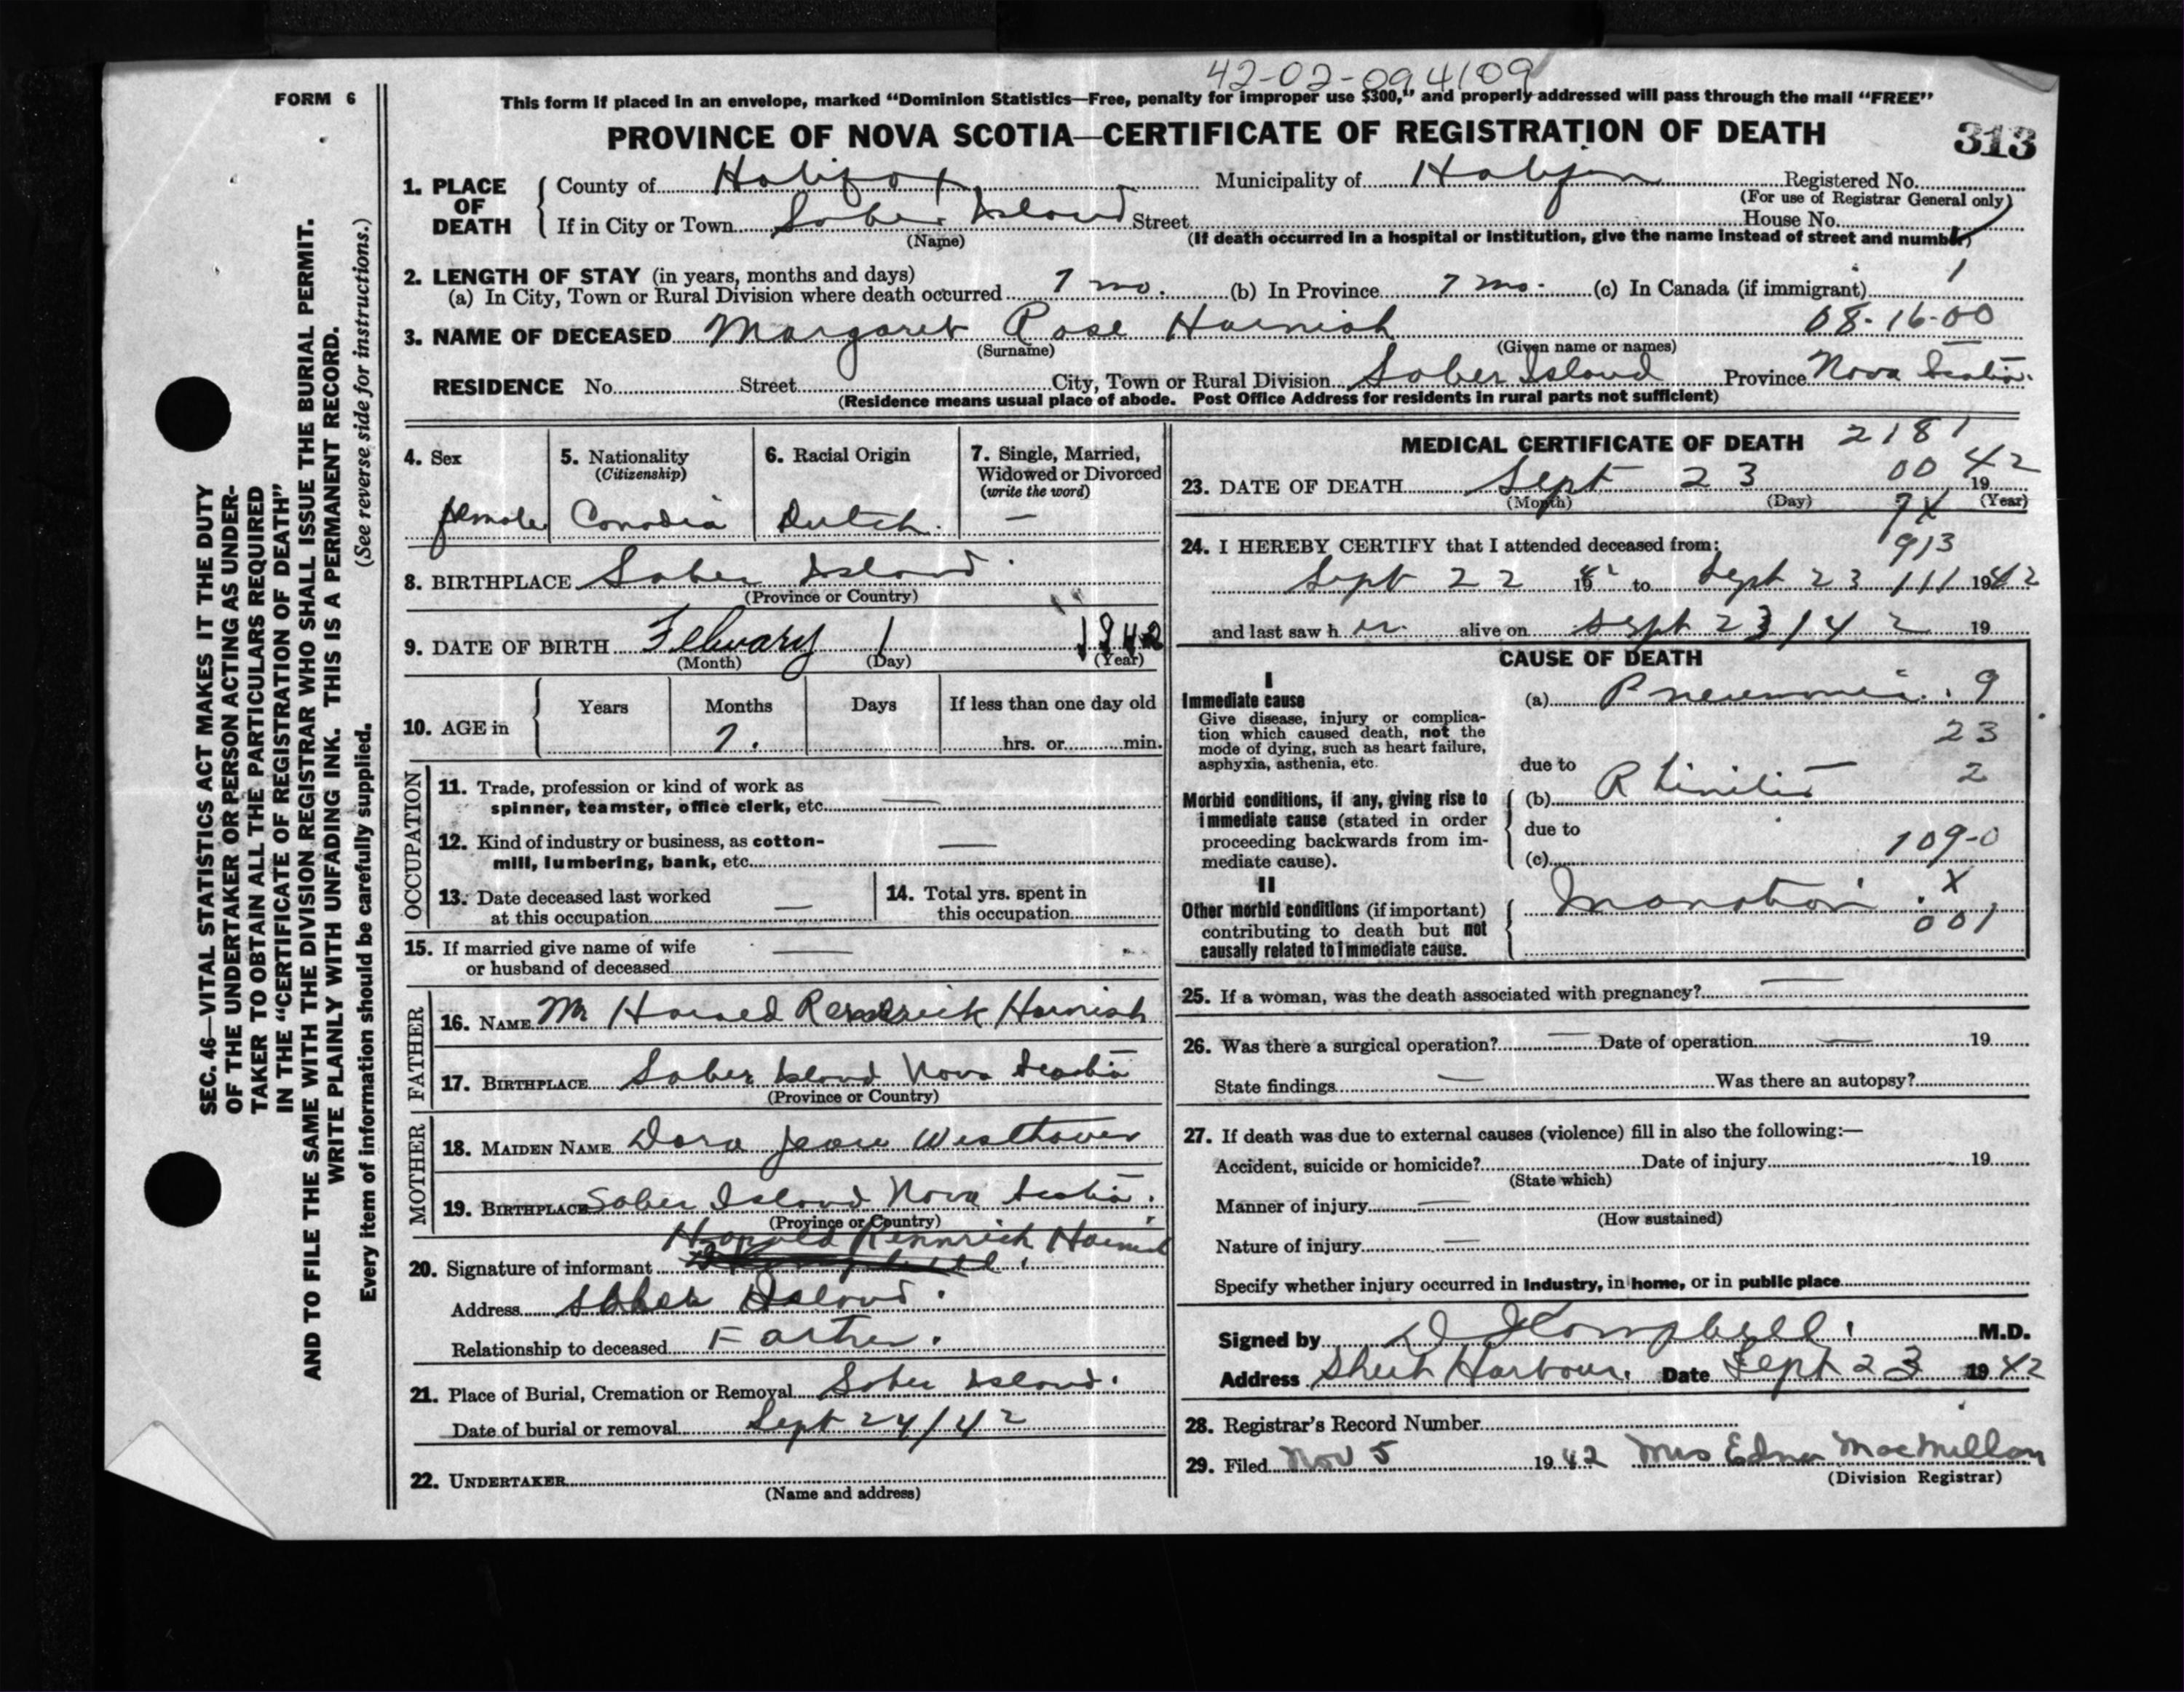 42-02-094109
FORM 6
This form if placed in an envelope, marked "Dominion Statistics—Free, penalty for improper use $300," and properly addressed will pass through the mail "FREE"
PROVINCE OF NOVA SCOTIA—CERTIFICATE OF REGISTRATION OF DEATH
313
1. PLACE OF DEATH
County of Halifax Municipality of Halifax Registered No.
(For use of Registrar General only)
If in City or Town Sober Island Street House No.
(Name) (If death occurred in a hospital or institution, give the name instead of street and number)
2. LENGTH OF STAY (in years, months and days) 1
(a) In City, Town or Rural Division where death occurred 7 mo. (b) In Province 7 mo. (c) In Canada (if immigrant)
08-16-00
3. NAME OF DECEASED Margaret Rose Harnish
(Surname) (Given name or names)
RESIDENCE No. Street City, Town or Rural Division Sober Island Province Nova Scotia.
(Residence means usual place of abode. Post Office Address for residents in rural parts not sufficient)
4. Sex
female
5. Nationality
(Citizenship)
Canadia
6. Racial Origin
Dutch.
7. Single, Married,
Widowed or Divorced
(write the word)
—
8. BIRTHPLACE Sober Island.
(Province or Country)
9. DATE OF BIRTH February 1 1942
(Month) (Day) (Year)
10. AGE in
Years Months Days If less than one day old
7. hrs. or min.
OCCUPATION
11. Trade, profession or kind of work as
spinner, teamster, office clerk, etc. —
12. Kind of industry or business, as cotton-
mill, lumbering, bank, etc. —
13. Date deceased last worked
at this occupation —
14. Total yrs. spent in
this occupation
15. If married give name of wife
or husband of deceased —
FATHER
16. NAME Mr Harold Harnish
17. BIRTHPLACE Sober Island Nova Scotia
(Province or Country)
MOTHER
18. MAIDEN NAME Dora Jean Westhaver
19. BIRTHPLACE Sober Island Nova Scotia.
(Province or Country)
20. Signature of informant Harold Harnish
Address Sober Island.
Relationship to deceased Farther.
21. Place of Burial, Cremation or Removal Sober Island.
Date of burial or removal Sept 24/42
22. UNDERTAKER
(Name and address)
MEDICAL CERTIFICATE OF DEATH 2181
00
23. DATE OF DEATH Sept 23 1942
(Month) (Day) (Year)
24. I HEREBY CERTIFY that I attended deceased from: 913
Sept 22 1942 to Sept 23 111 1942
and last saw h er alive on Sept 23/42 19
CAUSE OF DEATH
I
Immediate cause
Give disease, injury or complica-
tion which caused death, not the
mode of dying, such as heart failure,
asphyxia, asthenia, etc.
(a) Pneumonia. 9
23
due to 2
Morbid conditions, if any, giving rise to
immediate cause (stated in order
proceeding backwards from im-
mediate cause).
(b) Rhinitis
due to
(c) 109-0
II
Other morbid conditions (if important)
contributing to death but not
causally related to immediate cause.
X
001
25. If a woman, was the death associated with pregnancy? —
26. Was there a surgical operation? — Date of operation — 19
State findings — Was there an autopsy?
27. If death was due to external causes (violence) fill in also the following:—
Accident, suicide or homicide? Date of injury 19
(State which)
Manner of injury —
(How sustained)
Nature of injury —
Specify whether injury occurred in industry, in home, or in public place
Signed by Campbell. M.D.
Address Sheet Harbour. Date Sept 23 1942
28. Registrar's Record Number
29. Filed Nov 5 1942 Mrs Edna MacMillan
(Division Registrar)
SEC. 46—VITAL STATISTICS ACT MAKES IT THE DUTY
OF THE UNDERTAKER OR PERSON ACTING AS UNDER-
TAKER TO OBTAIN ALL THE PARTICULARS REQUIRED
IN THE "CERTIFICATE OF REGISTRATION OF DEATH"
AND TO FILE THE SAME WITH THE DIVISION REGISTRAR WHO SHALL ISSUE THE BURIAL PERMIT.
WRITE PLAINLY WITH UNFADING INK. THIS IS A PERMANENT RECORD.
Every item of information should be carefully supplied. (See reverse side for instructions.)